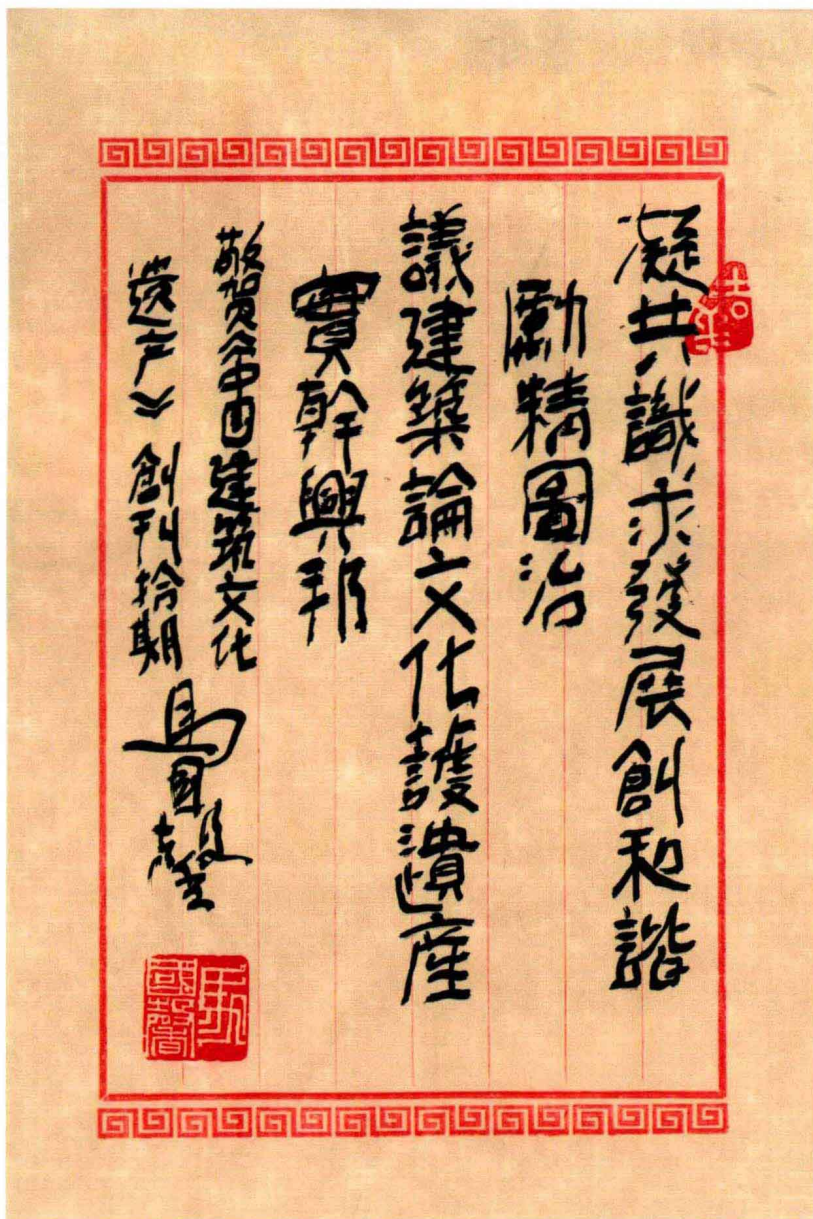 凝共識求發展創和諧
勵精圖治
議建築論文化護遺産
實幹興邦
敬贺《中国建筑文化
遗产》創刊拾期
馬国馨
馬國馨